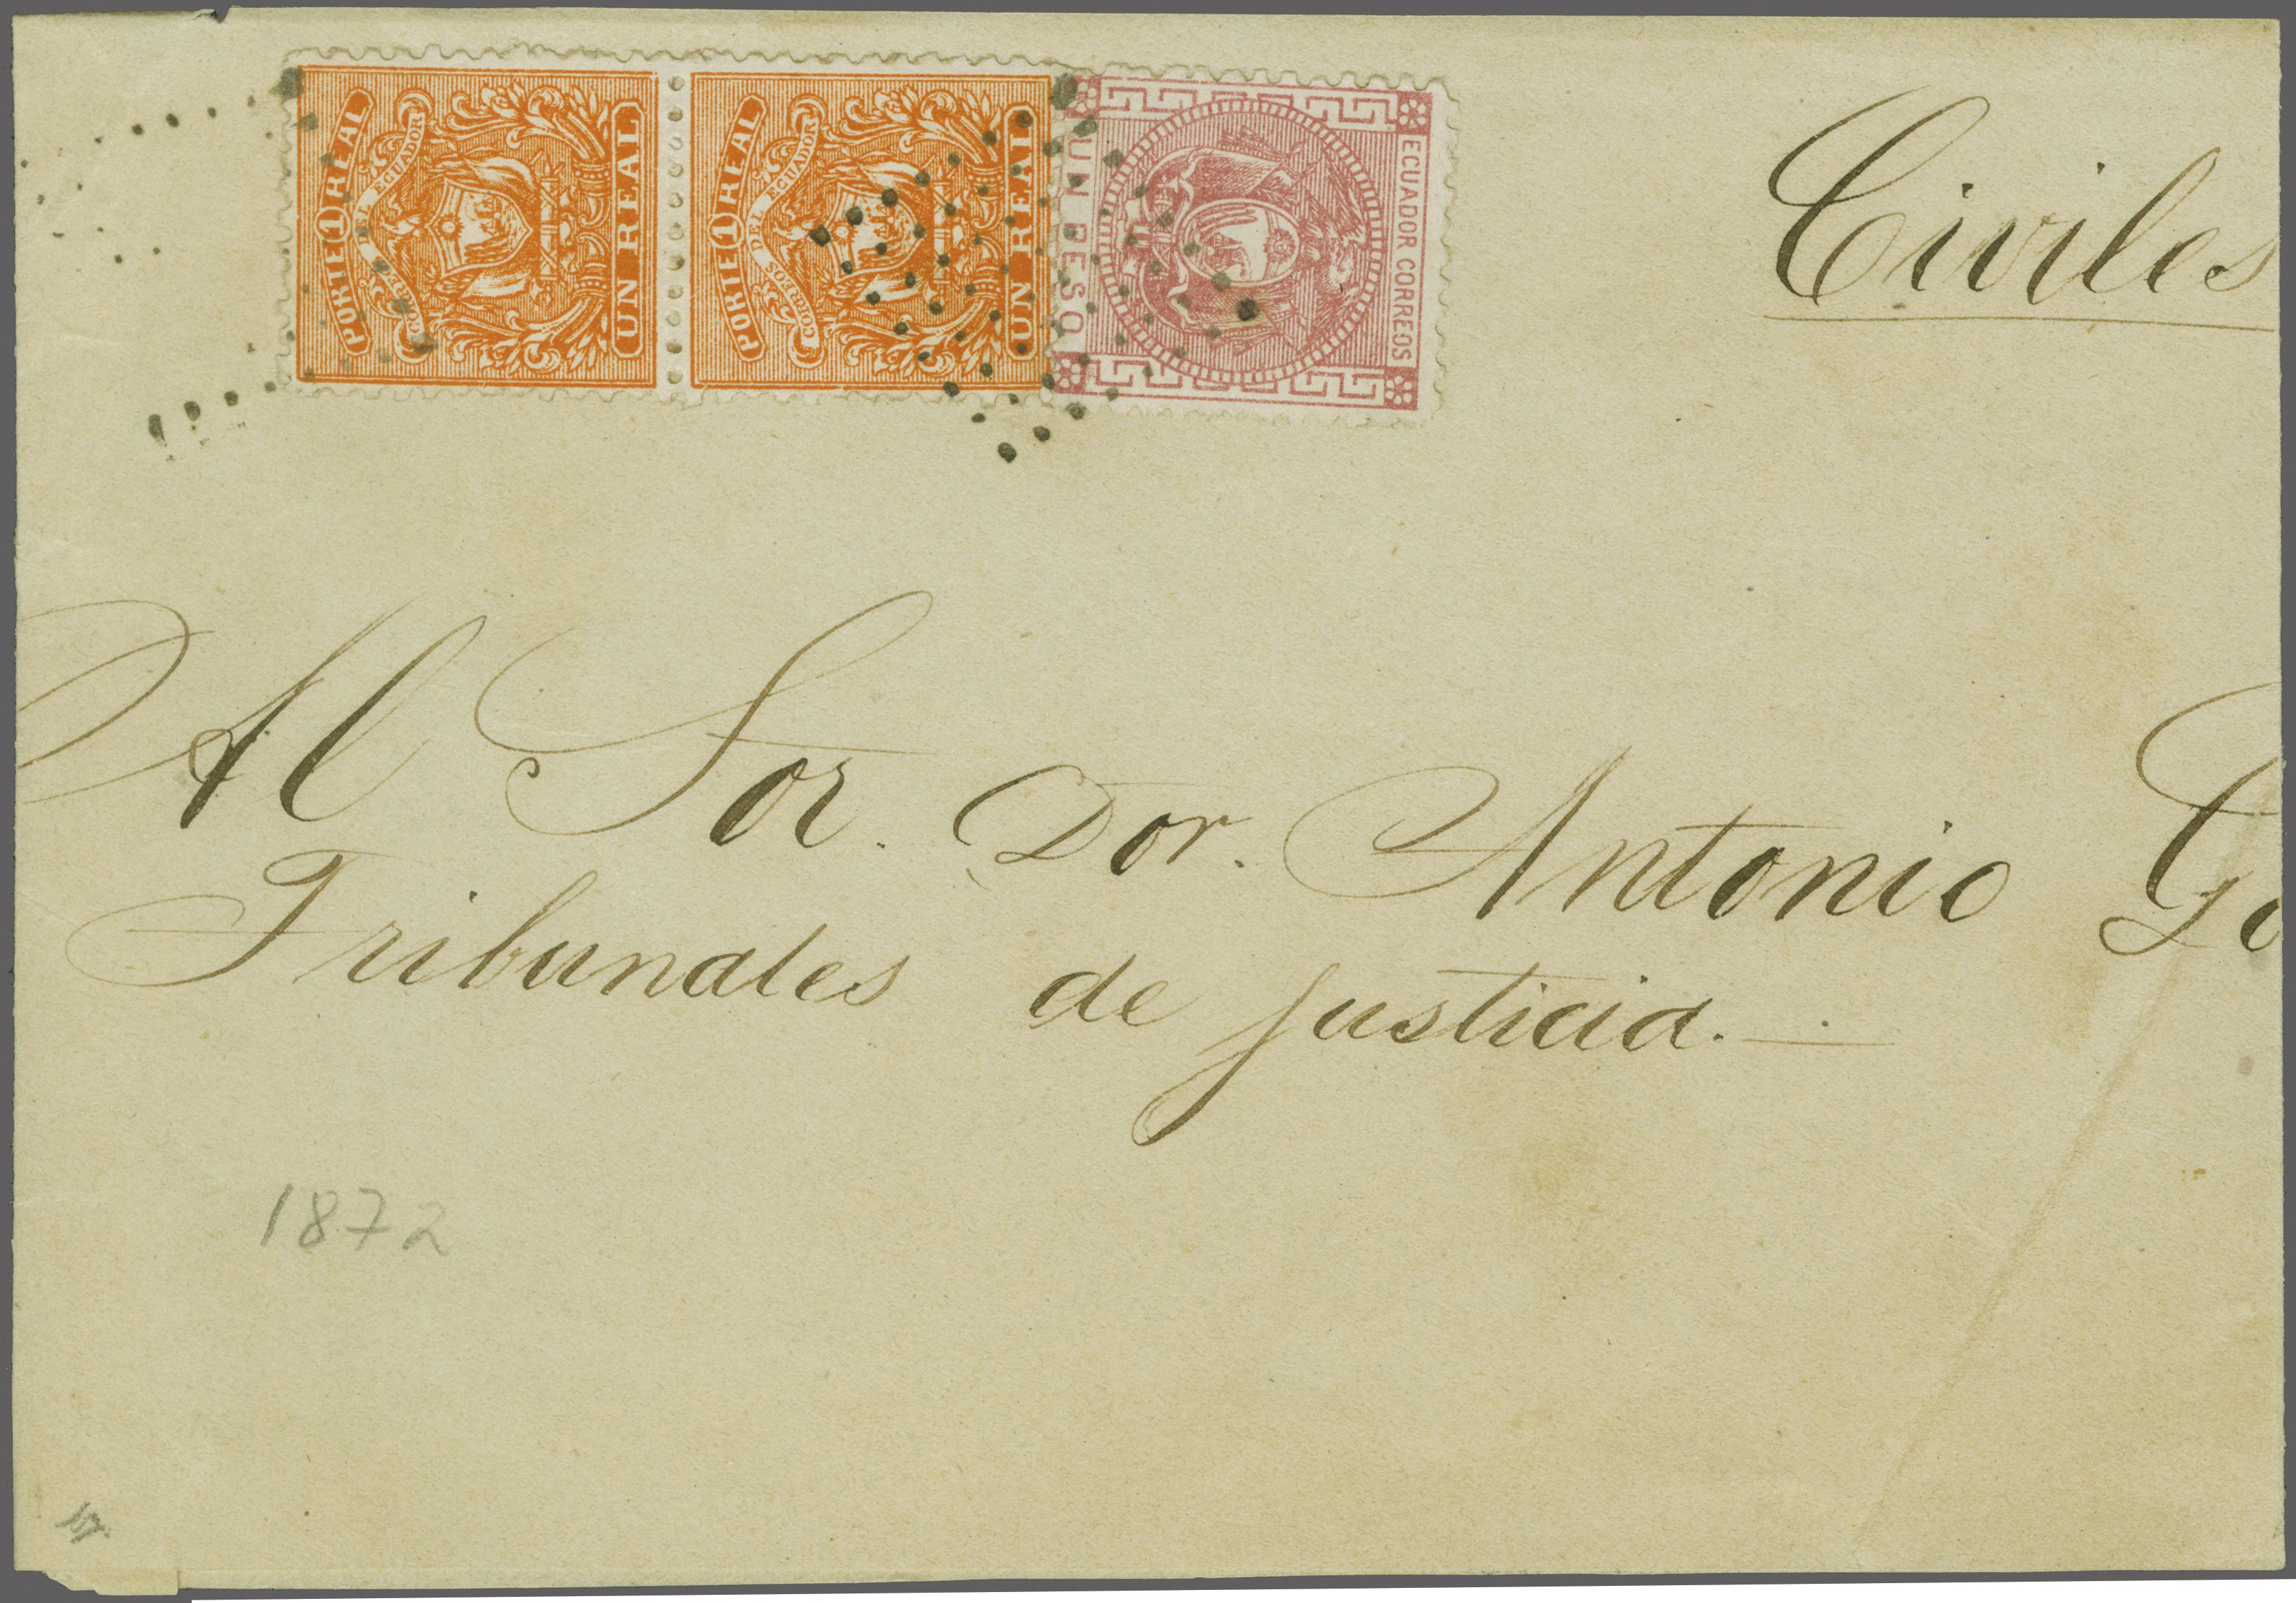 PORTE 1 REAL
CORREOS DEL ECUADOR
UN REAL
PORTE 1 REAL
CORREOS DEL ECUADOR
UN REAL
ECUADOR CORREOS
UN PESO
Civiles
Al Sor. Dor. Antonio Go
Tribunales de Justicia.
1872